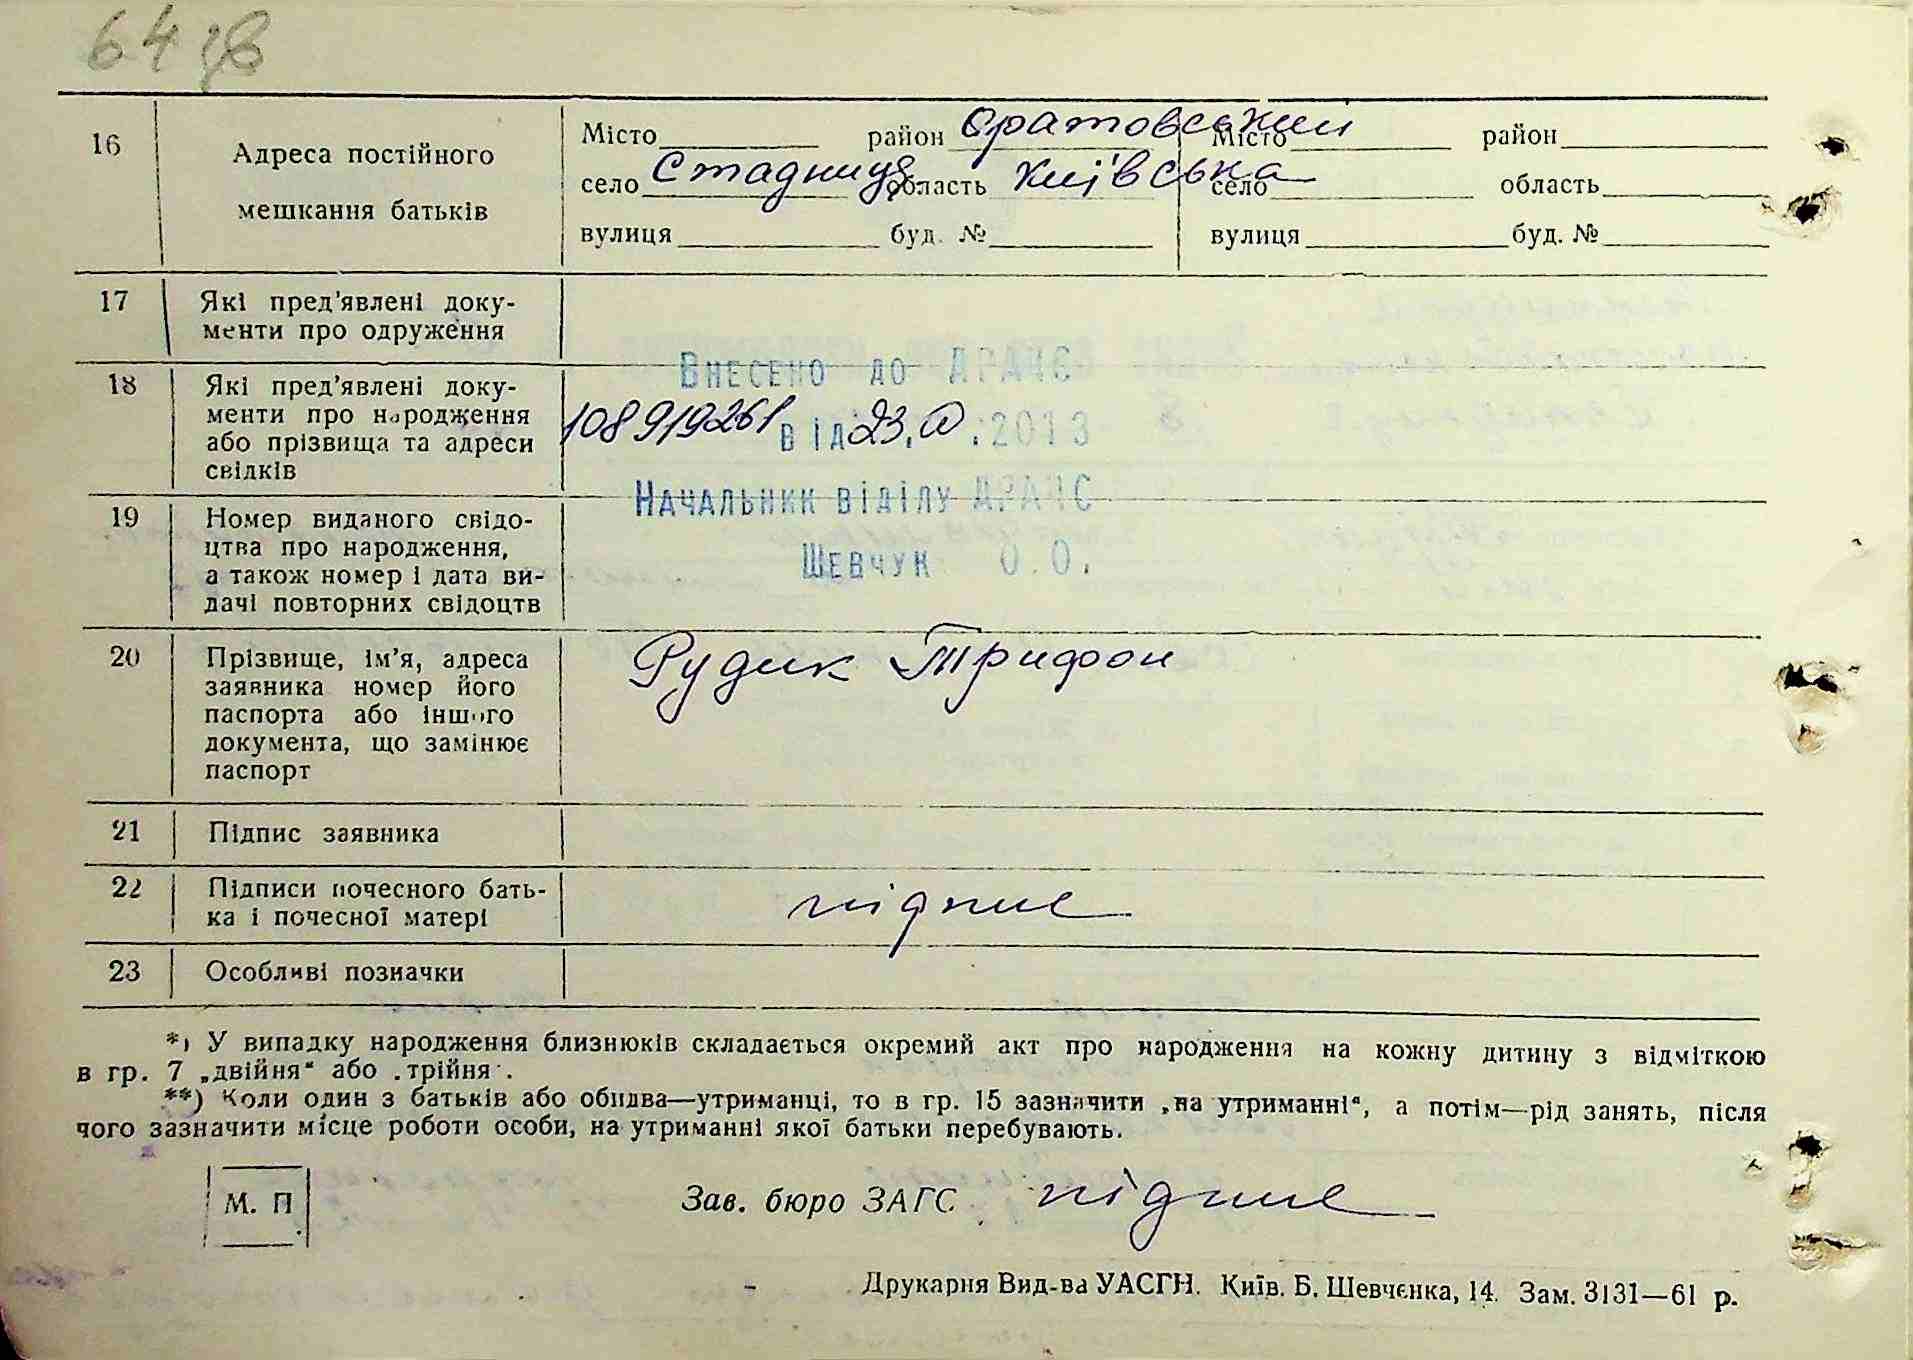 64 зв
16
Адреса постійного
мешкання батьків
Місто район Оратовський
село Стадниця область Київська
вулиця буд. №
Місто район
село область
вулиця буд. №
17
Які пред'явлені доку-
менти про одруження
18
Які пред'явлені доку-
менти про народження
або прізвища та адреси
свідків
Внесено до ДРАЦС
108919261 від 23. .2013
Начальник відділу ДРАЦС
Шевчук О.О.
19
Номер виданого свідо-
цтва про народження,
а також номер і дата ви-
дачі повторних свідоцтв
20
Прізвище, ім'я, адреса
заявника номер його
паспорта або іншого
документа, що замінює
паспорт
Рудик Трифон
21
Підпис заявника
22
Підписи почесного бать-
ка і почесної матері
підпис
23
Особливі позначки
*) У випадку народження близнюків складається окремий акт про народження на кожну дитину з відміткою
в гр. 7 „двійня" або „трійня".
**) Коли один з батьків або обидва—утриманці, то в гр. 15 зазначити „на утриманні", а потім—рід занять, після
чого зазначити місце роботи особи, на утриманні якої батьки перебувають.
М. П
Зав. бюро ЗАГС підпис
Друкарня Вид-ва УАСГН. Київ. Б. Шевченка, 14. Зам. 3131—61 р.